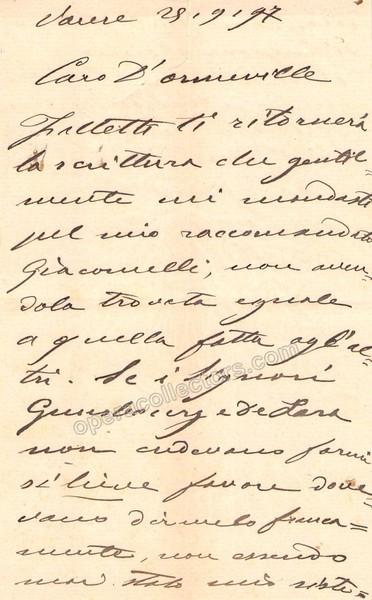 Varese 25/9/97
Caro D'ormeville
Filetti ti ritornerà
la scrittura che gentil=
mente mi mandasti
pel mio raccomandato
Giacomelli, non aven=
dola trovata eguale
a quella fatta agl'al=
tri. Se i Signori
Gunsbourg e de Lara
non credevano farmi
sì lieve favore dove=
vano dirmelo franca=
mente, non essendo
mai stato mio siste=
operacollectors.com